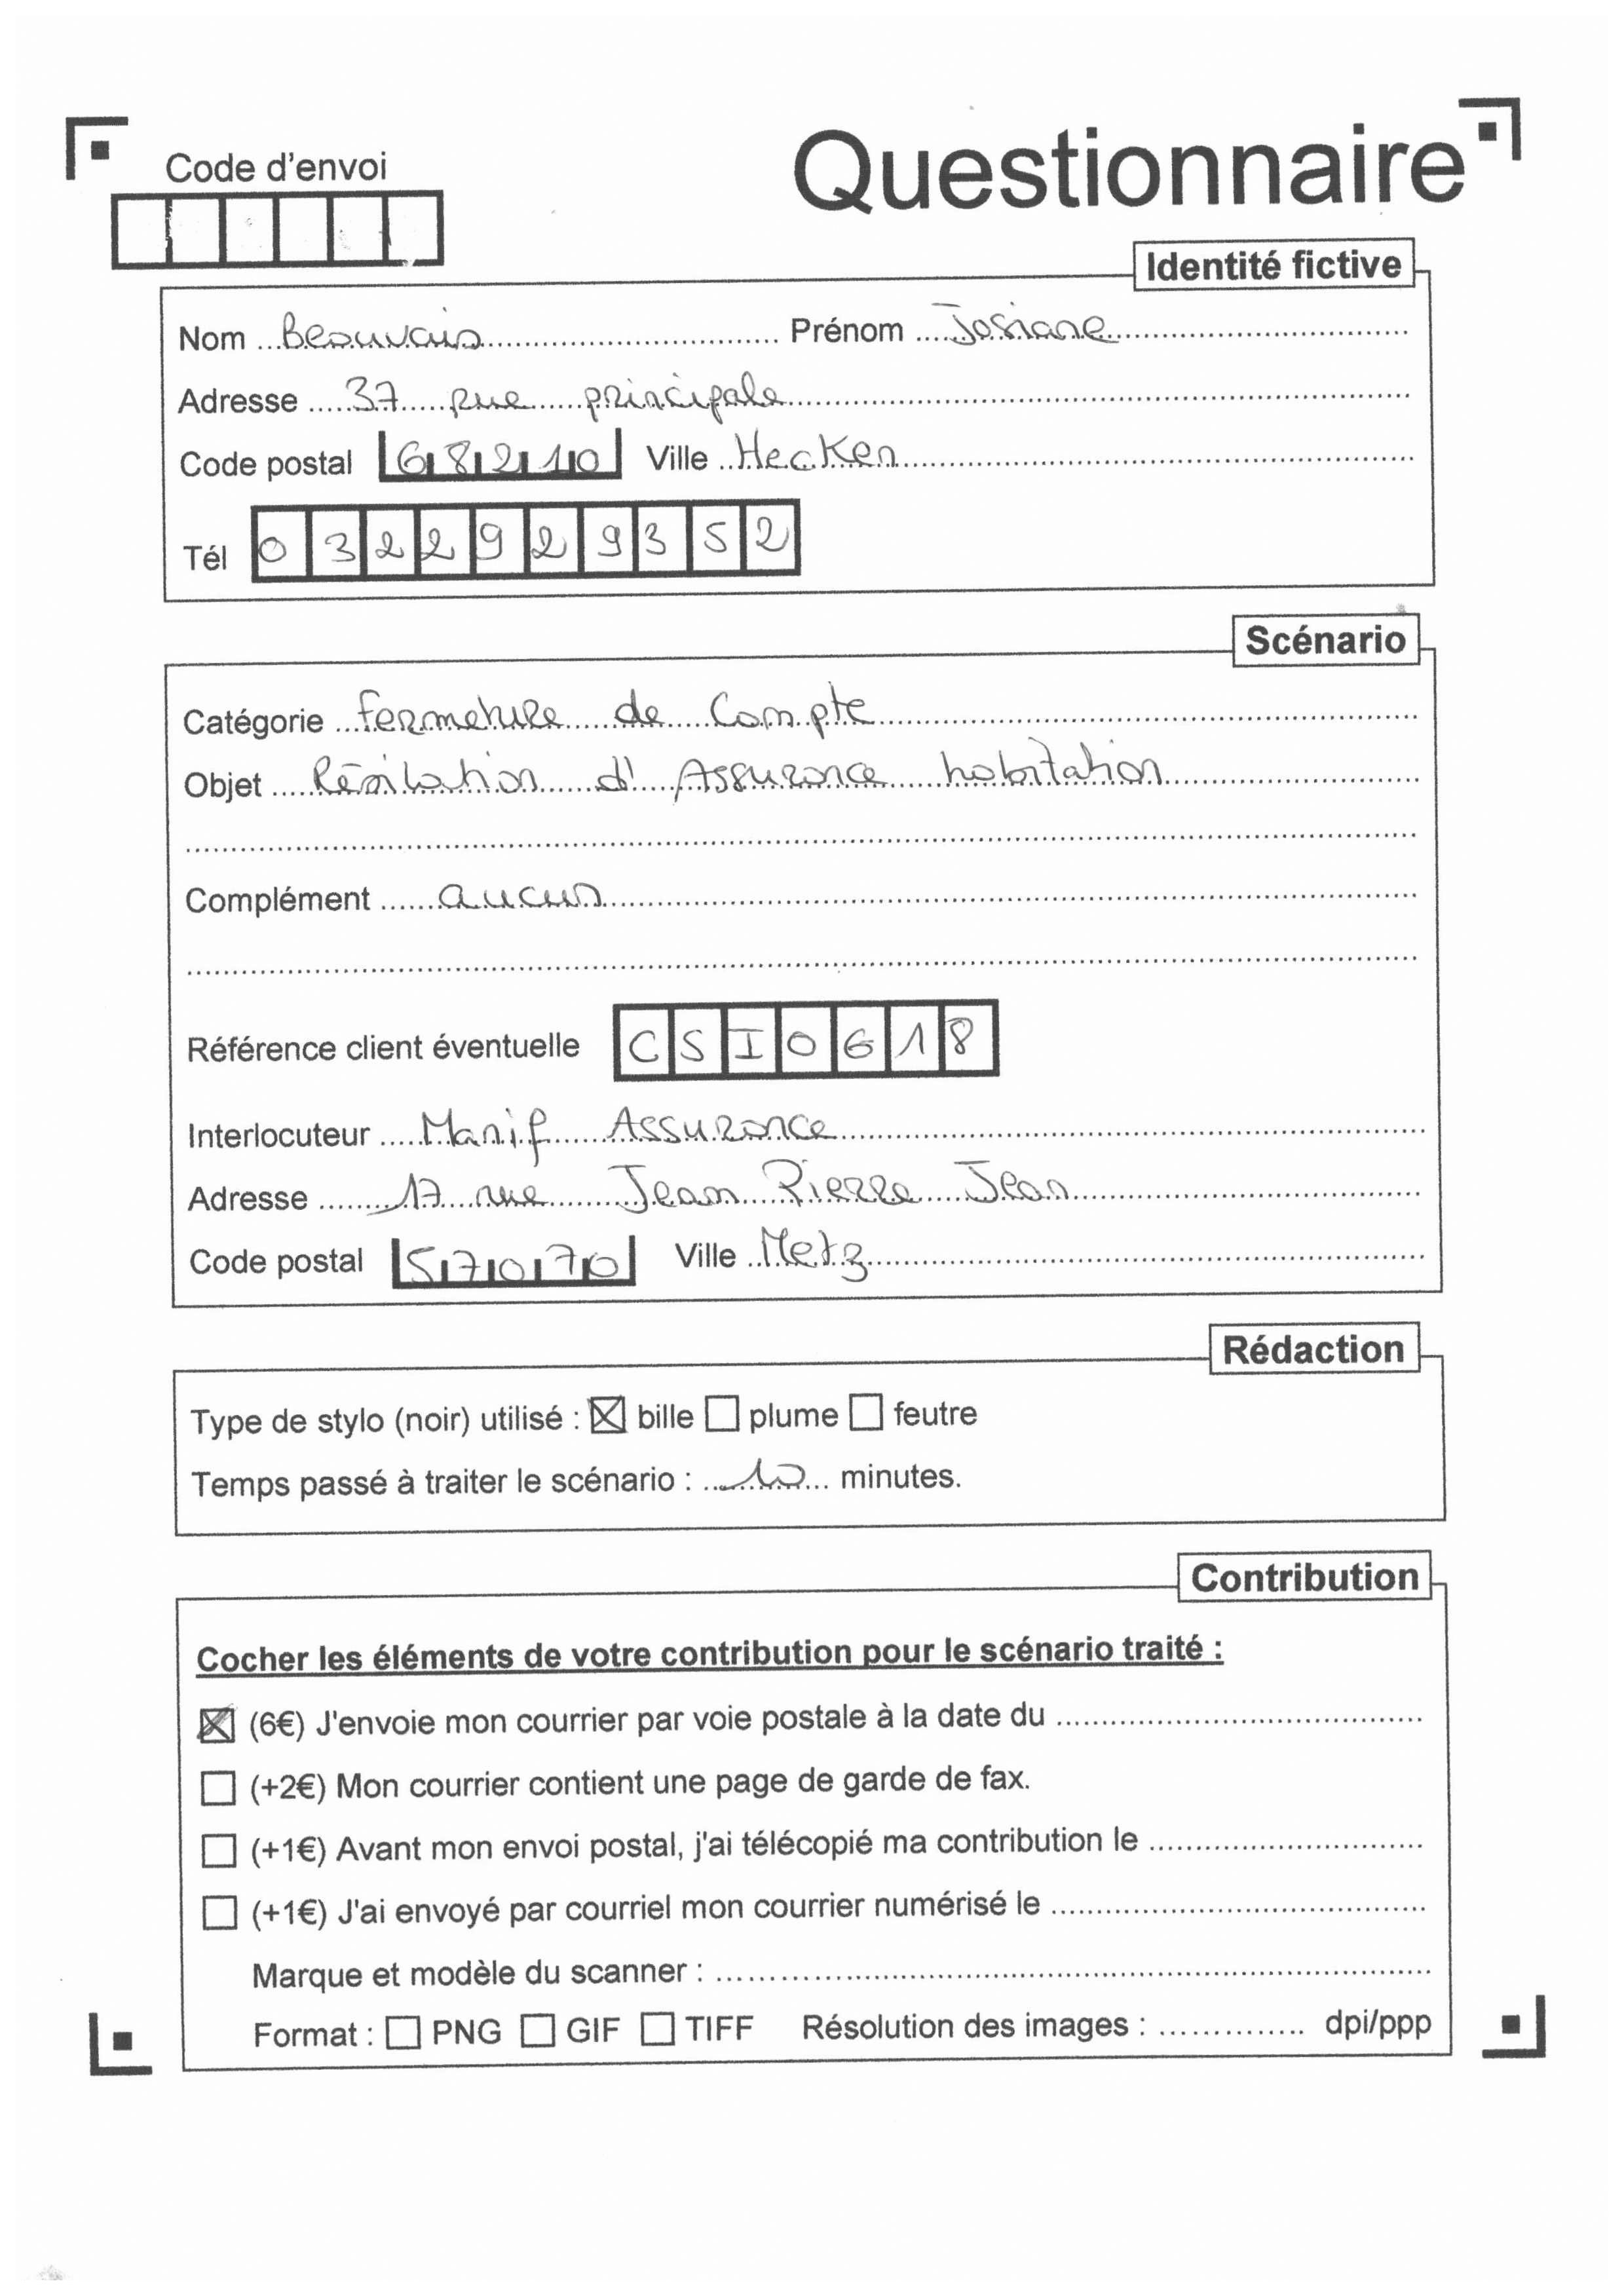 Questionnaire
Code d'envoi
Identité fictive
Nom Beauvais Prénom Josiane
Adresse 37 rue principale
Code postal 68210 Ville Hecken
Tél 0322929352
Scénario
Catégorie Fermeture de Compte
Objet Résilation d'Assurance habitation
Complément aucun
Référence client éventuelle CSI0618
Interlocuteur Manif Assurance
Adresse 17 rue Jean Pierre Jean
Code postal 57070 Ville Metz
Rédaction
Type de stylo (noir) utilisé : ☒ bille ☐ plume ☐ feutre
Temps passé à traiter le scénario : 10 minutes.
Contribution
Cocher les éléments de votre contribution pour le scénario traité :
☒ (6€) J'envoie mon courrier par voie postale à la date du
☐ (+2€) Mon courrier contient une page de garde de fax.
☐ (+1€) Avant mon envoi postal, j'ai télécopié ma contribution le
☐ (+1€) J'ai envoyé par courriel mon courrier numérisé le
Marque et modèle du scanner :
Format : ☐ PNG ☐ GIF ☐ TIFF Résolution des images : dpi/ppp